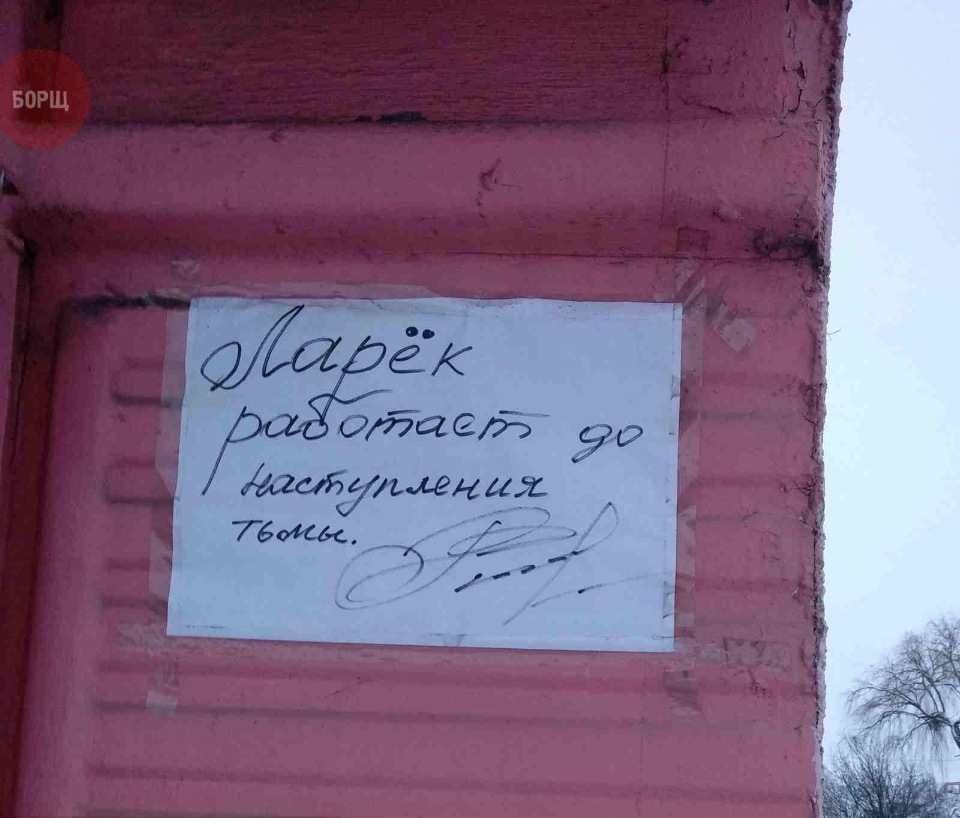 БОРЩ
Ларёк
работает до
наступления
тьмы.